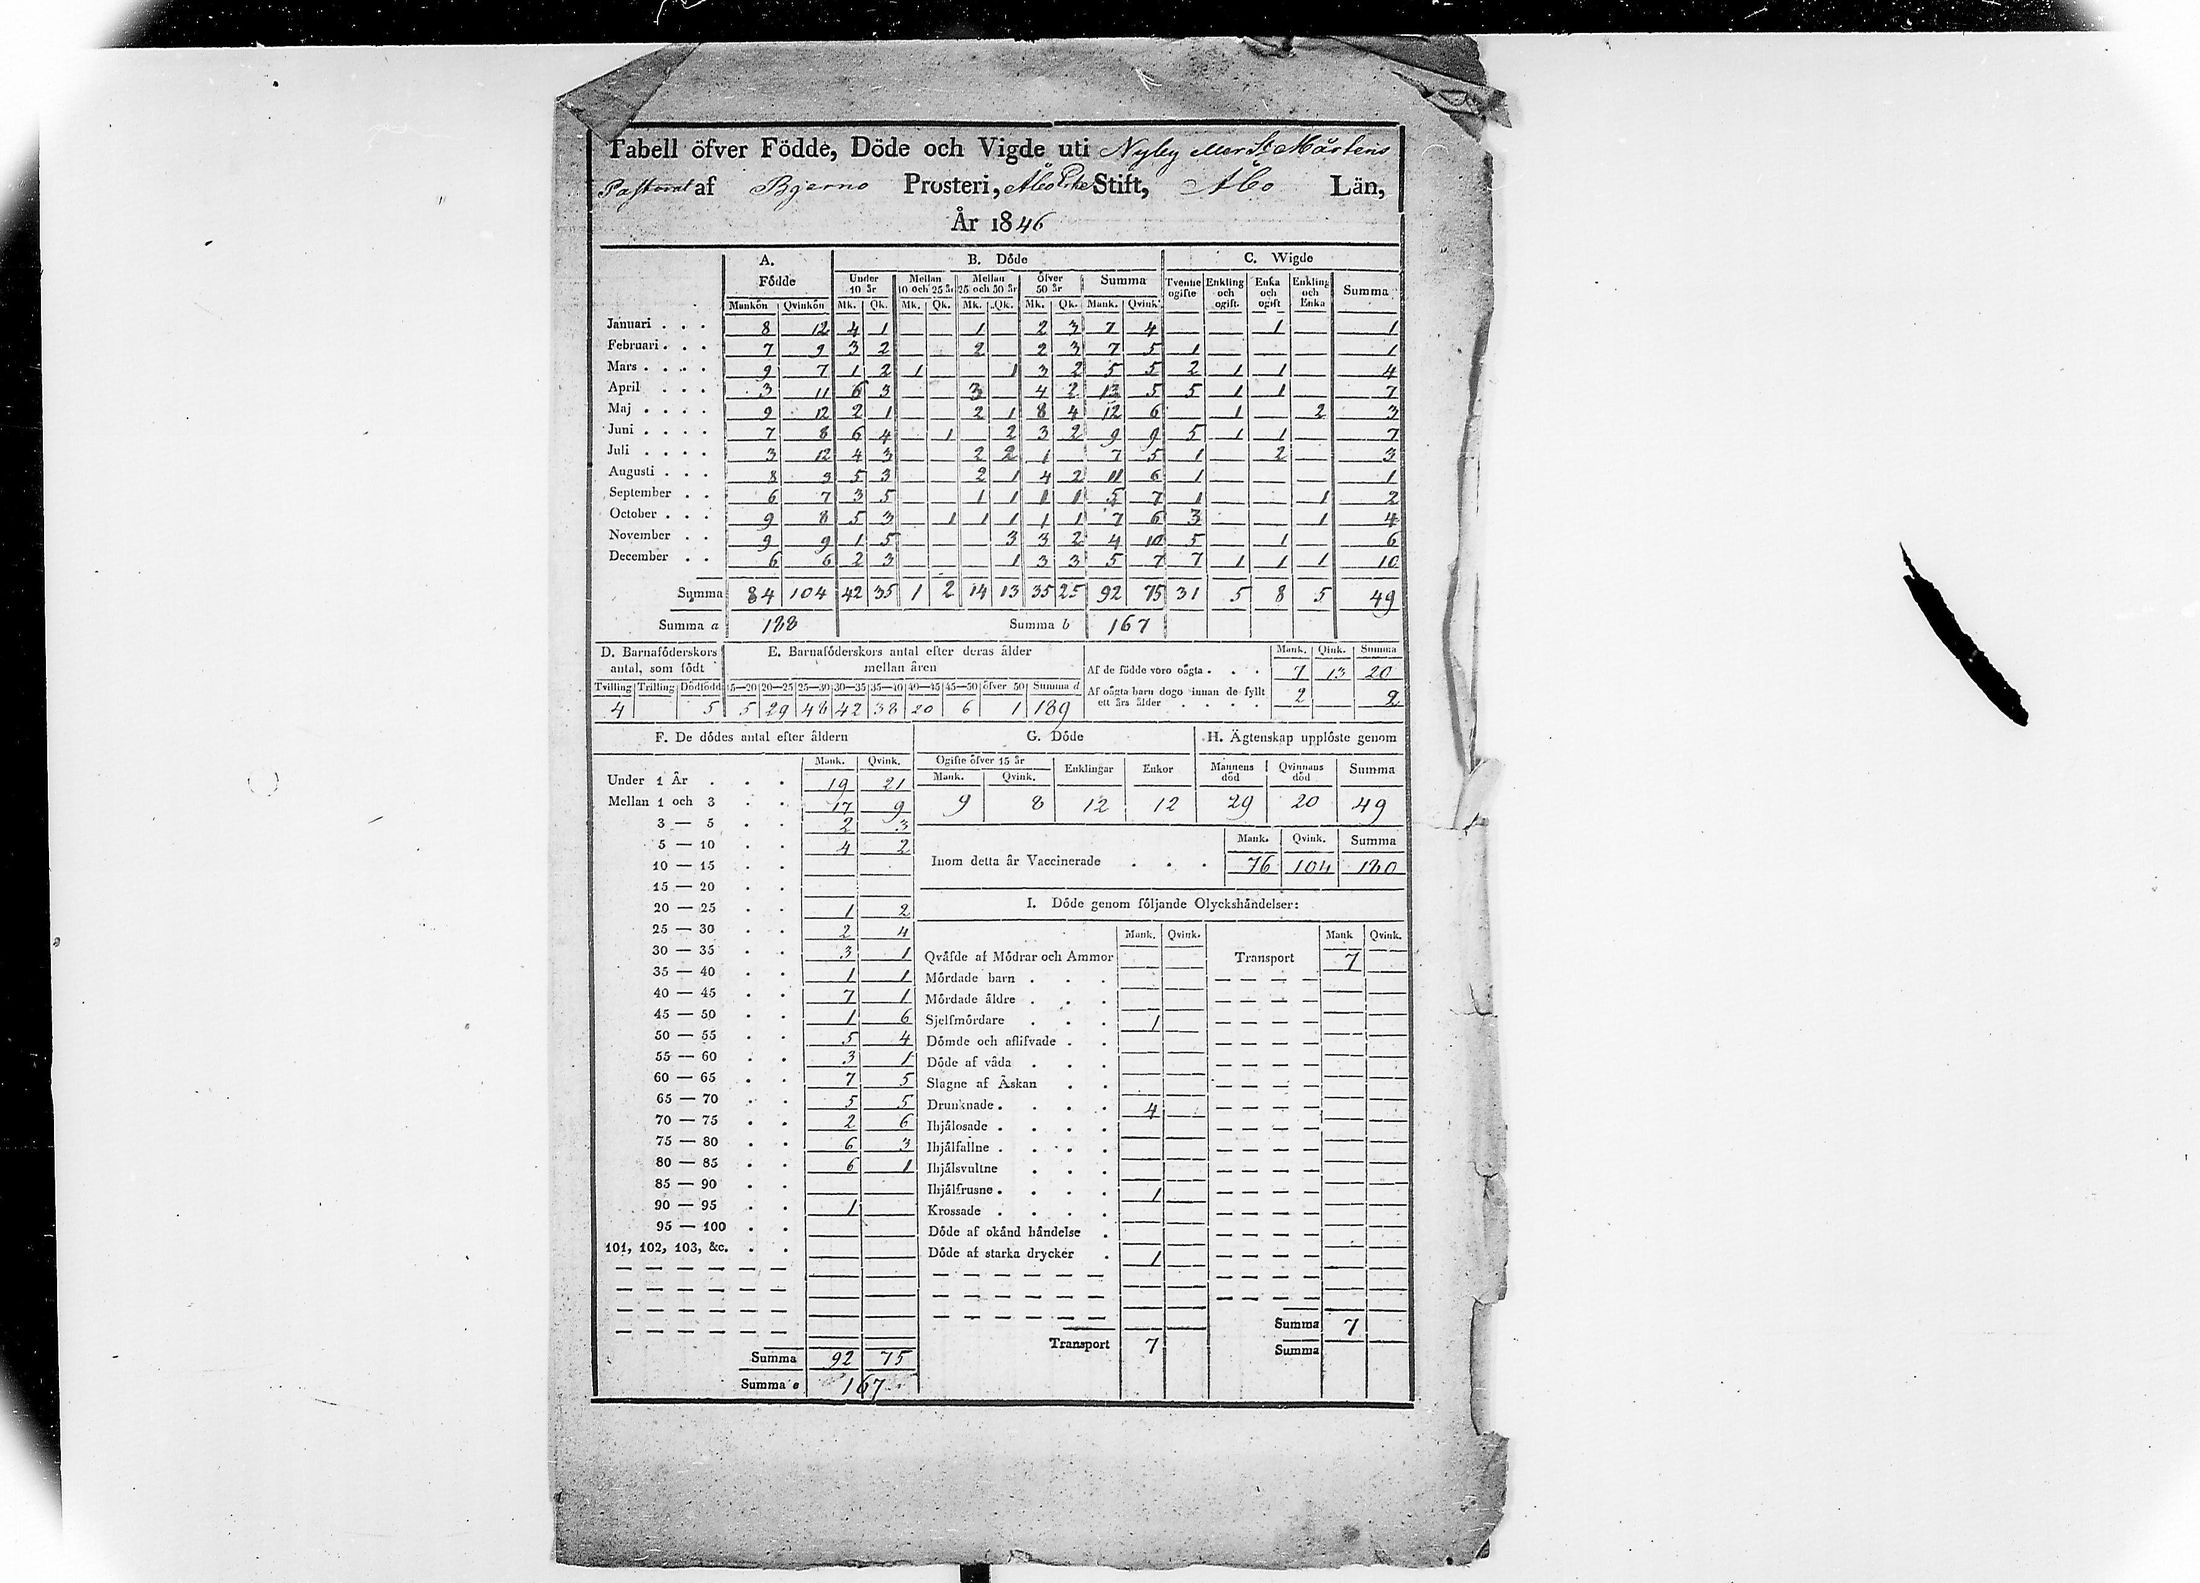 Tabell öfver Födde, Döde och Vigde uti Nyby eller St Mårtens
Pastorat af Bjerno Prosteri, Åbo Erke Stift, Åbo Län,
År 1846
A. Födde B. Döde C. Wigde
Under 10 år Mellan 10 och 25 år Mellan 25 och 50 år Öfver 50 år Summa Tvenne ogifte Enkling och ogift. Enka och ogift Enkling och Enka Summa
Mankön Qvinkön Mk. Qk. Mk. Qk. Mk. Qk. Mk. Qk. Mank. Qvink.
Januari . . . 8 12 4 1 1 2 3 7 4 1 1
Februari . . . 7 9 3 2 2 2 3 7 5 1 1
Mars . . . . 9 7 1 2 1 1 3 2 5 5 2 1 1 4
April . . . 3 11 6 3 3 4 2 13 5 5 1 1 7
Maj . . . . 9 12 2 1 2 1 8 4 12 6 1 2 3
Juni . . . . 7 8 6 4 1 2 3 2 9 9 5 1 1 7
Juli . . . . 3 12 4 3 2 2 1 7 5 1 2 3
Augusti . . . 8 3 5 3 2 1 4 2 11 6 1 1
September . . 6 7 3 5 1 1 1 1 5 7 1 1 2
October . . . 9 8 5 3 1 1 1 1 1 7 6 3 1 4
November . . 9 9 1 5 3 3 2 4 10 5 1 6
December . . 6 6 2 3 1 3 3 5 7 7 1 1 1 10
Summa 84 104 42 35 1 2 14 13 35 25 92 75 31 5 8 5 49
Summa a 188 Summa b 167
D. Barnaföderskors antal, som födt
Tvilling Trilling Dödfödd
4 5
E. Barnaföderskors antal efter deras ålder mellan åren
15—20 20—25 25—30 30—35 35—40 40—45 45—50 öfver 50 Summa d
5 29 48 42 38 20 6 1 189
Mank. Qink. Summa
Af de födde voro oägta . . . 7 13 20
Af oägta barn dogo innan de fyllt ett års ålder . . . . 2 2
F. De dödes antal efter åldern
Mank. Qvink.
Under 1 År . . . 19 21
Mellan 1 och 3 . . 17 9
3 — 5 . . 2 3
5 — 10 . . 4 2
10 — 15 . .
15 — 20 . .
20 — 25 . . 1 2
25 — 30 . . 2 4
30 — 35 . . 3 1
35 — 40 . . 1 1
40 — 45 . . 7 1
45 — 50 . . 1 6
50 — 55 . . 5 4
55 — 60 . . 3 1
60 — 65 . . 7 5
65 — 70 . . 5 5
70 — 75 . . 2 6
75 — 80 . . 6 3
80 — 85 . . 6 1
85 — 90 . .
90 — 95 . . 1
95 — 100 . .
101, 102, 103, &c. . .
Summa 92 75
Summa e 167
G. Döde
Ogifte öfver 15 år Enklingar Enkor
Mank. Qvink.
9 8 12 12
H. Ägtenskap upplöste genom
Mannens död Qvinnans död Summa
29 20 49
Mank. Qvink. Summa
Inom detta år Vaccinerade . . . 76 104 180
I. Döde genom följande Olyckshändelser:
Mank. Qvink. Mank Qvink.
Qväfde af Mödrar och Ammor Transport 7
Mördade barn . . .
Mördade äldre . . .
Sjelfmördare . . . 1
Dömde och aflifvade . .
Döde af våda . . .
Slagne af Åskan . .
Drunknade . . . . 4
Ihjälosade . . . .
Ihjälfallne . . . .
Ihjälsvultne . . .
Ihjälfrusne . . . . 1
Krossade . . . .
Döde af okänd händelse .
Döde af starka drycker . 1
Summa 7
Transport 7 Summa